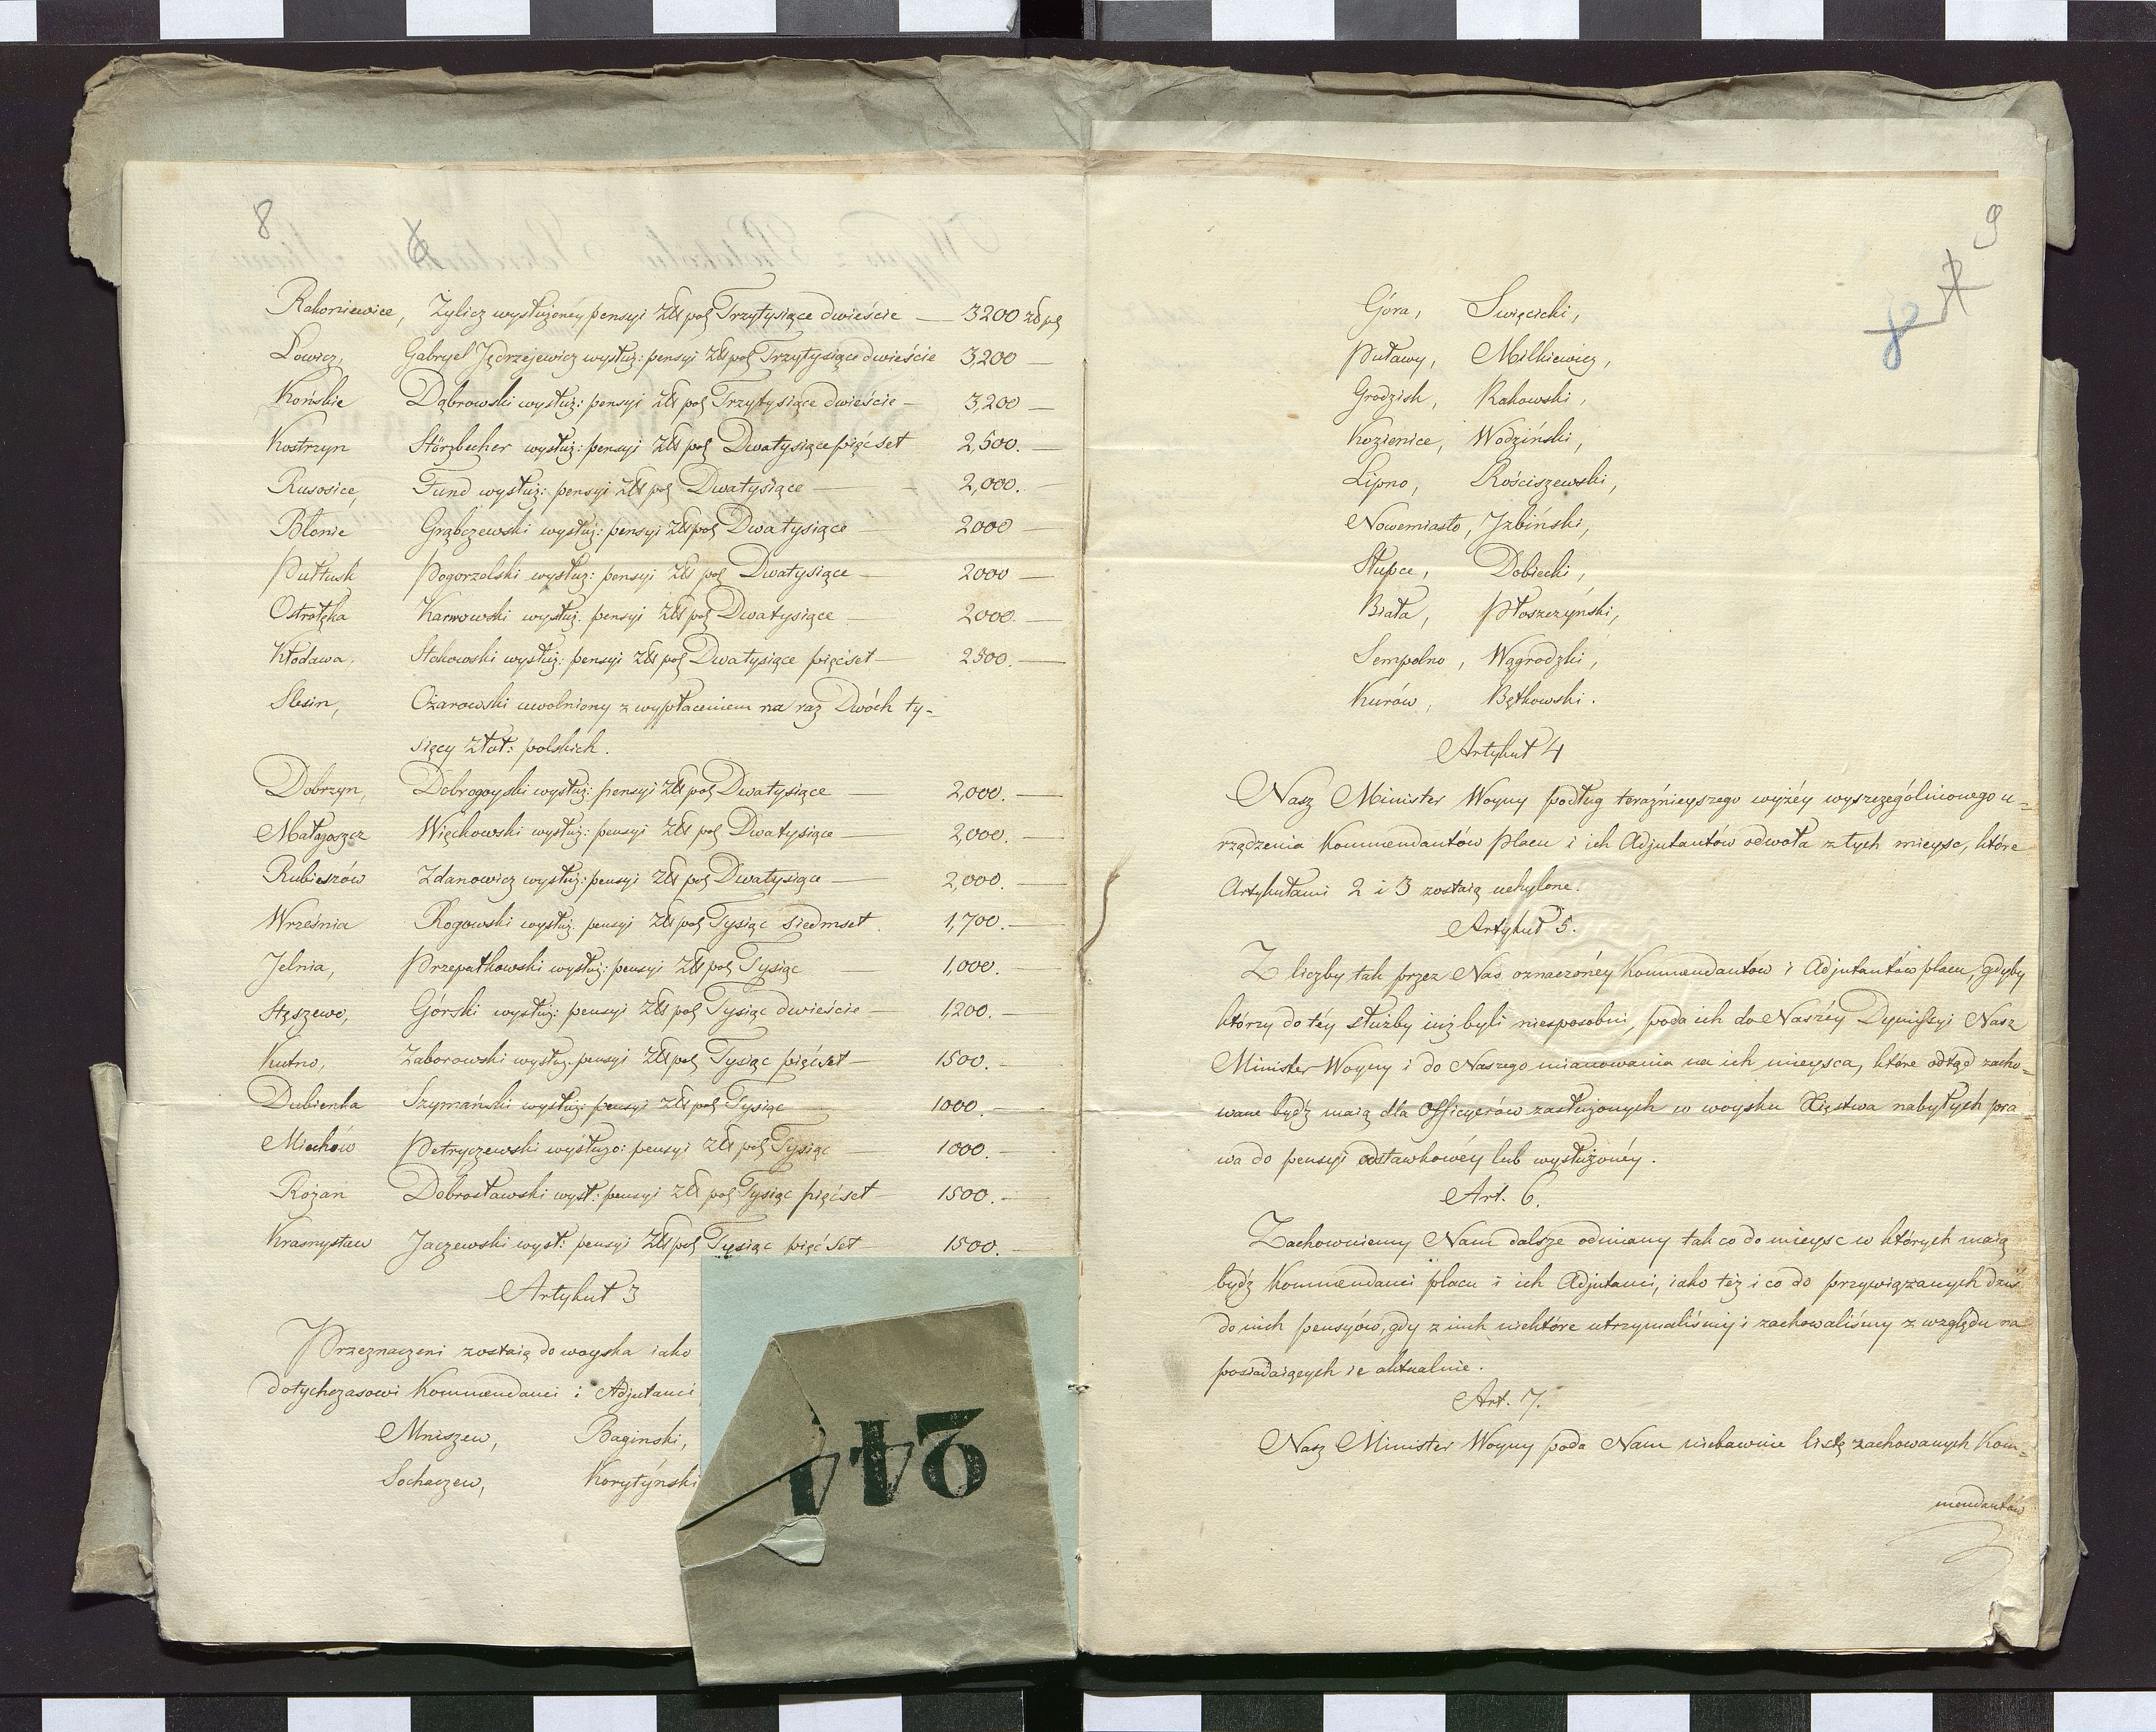 8
Rakoniewice, Zylicz wysłużonéy pensyi Złł pol Trzytysiące dwieście — 3200 zł pl
Łowicz, Gabryel Jędrzejewicz wysłuż: pensyi Złł pol Trzytysiące dwieście 3,200 —
Końskie Dąbrowski wysłuż: pensyi Złł pol Trzytysiące dwieście — 3,200 —
Kostrzyn Störzbecher wysłuż: pensyi Złł pol Dwatysiące pięćset 2,500. —
Rusosice, Fund wysłuż: pensyi Złł pol Dwatysiące — 2,000. —
Błonie Grąbczewski wysłuż: pensyi Złł pol Dwa tysiące 2000 —
Pułtusk Pogorzelski wysłuż: pensyi Złł pol Dwatysiące — 2000 —
Ostrołęka Karwowski wysłuż. pensyi Złł pol Dwatysiące — 2000. —
Kłodawa, Stokowski wysłuż: pensyi Złł pol Dwatysiące pięćset — 2500. —
Slesin, Ożarowski uwolniony z wypłaceniem na raz Dwóch ty-
sięcy złot: polskich.
Dobrzyn, Dobrogoyski wysłuż: pensyi Złł pol Dwatysiące — 2,000. —
Małogoszcz Więckowski wysłuż: pensyi Złł pol Dwatysiące — 2,000. —
Rubieszów Zdanowicz wysłuż: pensyi Złł pol Dwatysiące — 2,000. —
Września Rogowski wysłuż. pensyi Złł pol Tysiąc siedmset. 1,700. —
Jelnia, Przepałkowski wysłuż: pensyi Złł pol Tysiąc — 1,000. —
Stęszewo, Górski wysłuż: pensyi Złł pol Tysiąc dwieście — 1,200. —
Kutno, Zaborowski wysłuż: pensyi Złł pol Tysiąc pięćset — 1500. —
Dubienka Szymański wysłuż: pensyi Złł pol Tysiąc — 1000. —
Miechów Petryczewski wysługo: pensyi Złł pol Tysiąc — 1000. —
Rożan Dobrosławski wysł: pensyi Złł pol Tysiąc pięćset — 1500. —
Krasnystaw Jaczewski wysł: pensyi Złł pol Tysiąc pięć Set 1500. —
Artykuł 3
Przeznaczeni zostaią do woyska iako
dotychczasowi Kommendanci i Adjutanci
Mniszew, Baginski,
Sochaczew, Korytyński
244
9
8
Góra, Swięcicki,
Puławy, Milkiewicz,
Grodzisk, Rakowski,
Kozienice, Wodziński,
Lipno, Rościszewski,
Nowemiasto, Jzbiński,
Słupce, Dobiecki,
Biała, Płoszczyński,
Sempolno, Wągrodzki,
Kurów, Bętkowski.
Artykuł 4
Nasz Minister Woyny podług teraźnieyszego wyźéy wyszczególnionego u-
rządzenia Kommendantów placu i ich Adjutantów odwoła z tych mieysc, które
Artykułami 2 i 3 zostaią uchylone.
Artykuł 5.
Z liczby tak przez Nas oznaczonéy Kommendantow i Adjutantów placu, gdyby
którzy do téy służby iuż byli niesposobni, poda ich do Naszéy Dymissyi Nasz
Minister Woyny i do Naszego mianowania na ich mieysca, które odtąd zacho-
wane bydź maią dla Officyerów zasłużonych w woysku Xięstwa nabyłych pra-
wa do pensyi odstawkowéy lub wysłużonéy.
Art. 6.
Zachowuiemy Nam dalsze odmiany tak co do mieysc w których maią
bydź Kommendanci placu i ich Adjutanci, iako też i co do przywiązanych dziś
do nich pensyów, gdy z nich niektóre utrzymaliśmy i zachowaliśmy z względu na
posiadaiących ie aktualnie.
Art. 7.
Nasz Minister Woyny poda Nam niebawnie listę zachowanych Kom-
mendantów